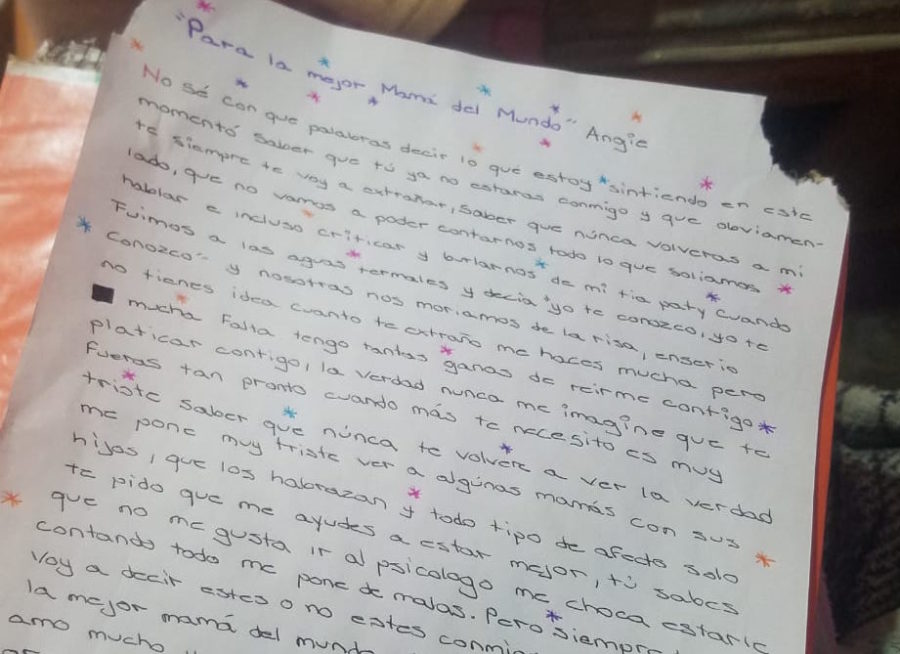 "Para la mejor Mamá del Mundo" Angie
No sé con que palabras decir lo que estoy sintiendo en este
momento saber que tú ya no estaras conmigo y que obviamen-
te siempre te voy a extrañar, saber que núnca volveras a mi
lado, que no vamos a poder contarnos todo lo que soliamos
hablar e incluso criticar y burlarnos de mi tia paty cuando
Fuimos a las aguas termales y decia "yo te conozco, yo te
conozco" y nosotras nos moriamos de la risa, enserio
no tienes idea cuanto te extraño me haces mucha pero
mucha falta tengo tantas ganas de reirme contigo
platicar contigo, la verdad nunca me imagine que te
fueras tan pronto cuando más te necesito es muy
triste saber que núnca te volvere a ver la verdad
me pone muy triste ver a algúnas mamás con sus
hijas, que los habrazan y todo tipo de afecto solo
te pido que me ayudes a estar mejor, tú sabes
que no me gusta ir al psicologo me choca estarle
contando todo me pone de malas. Pero siempre
voy a decir estes o no estes
la mejor mamá del
amo mucho